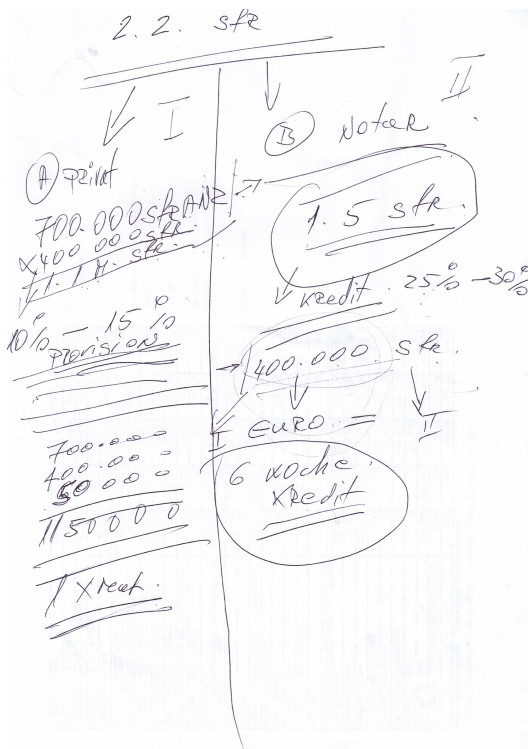 2.2. sfr
I
II
A privat
700.000 sfr ANZ
X400 000 sfr
1.1 M. sfr.
10% — 15%
PROVISION
700.000
400.000
50 000
1150000
B Notar
1.5 sfr.
Kredit 25% — 30%
400.000 sfr.
I EURO = II
6 woche
Kredit